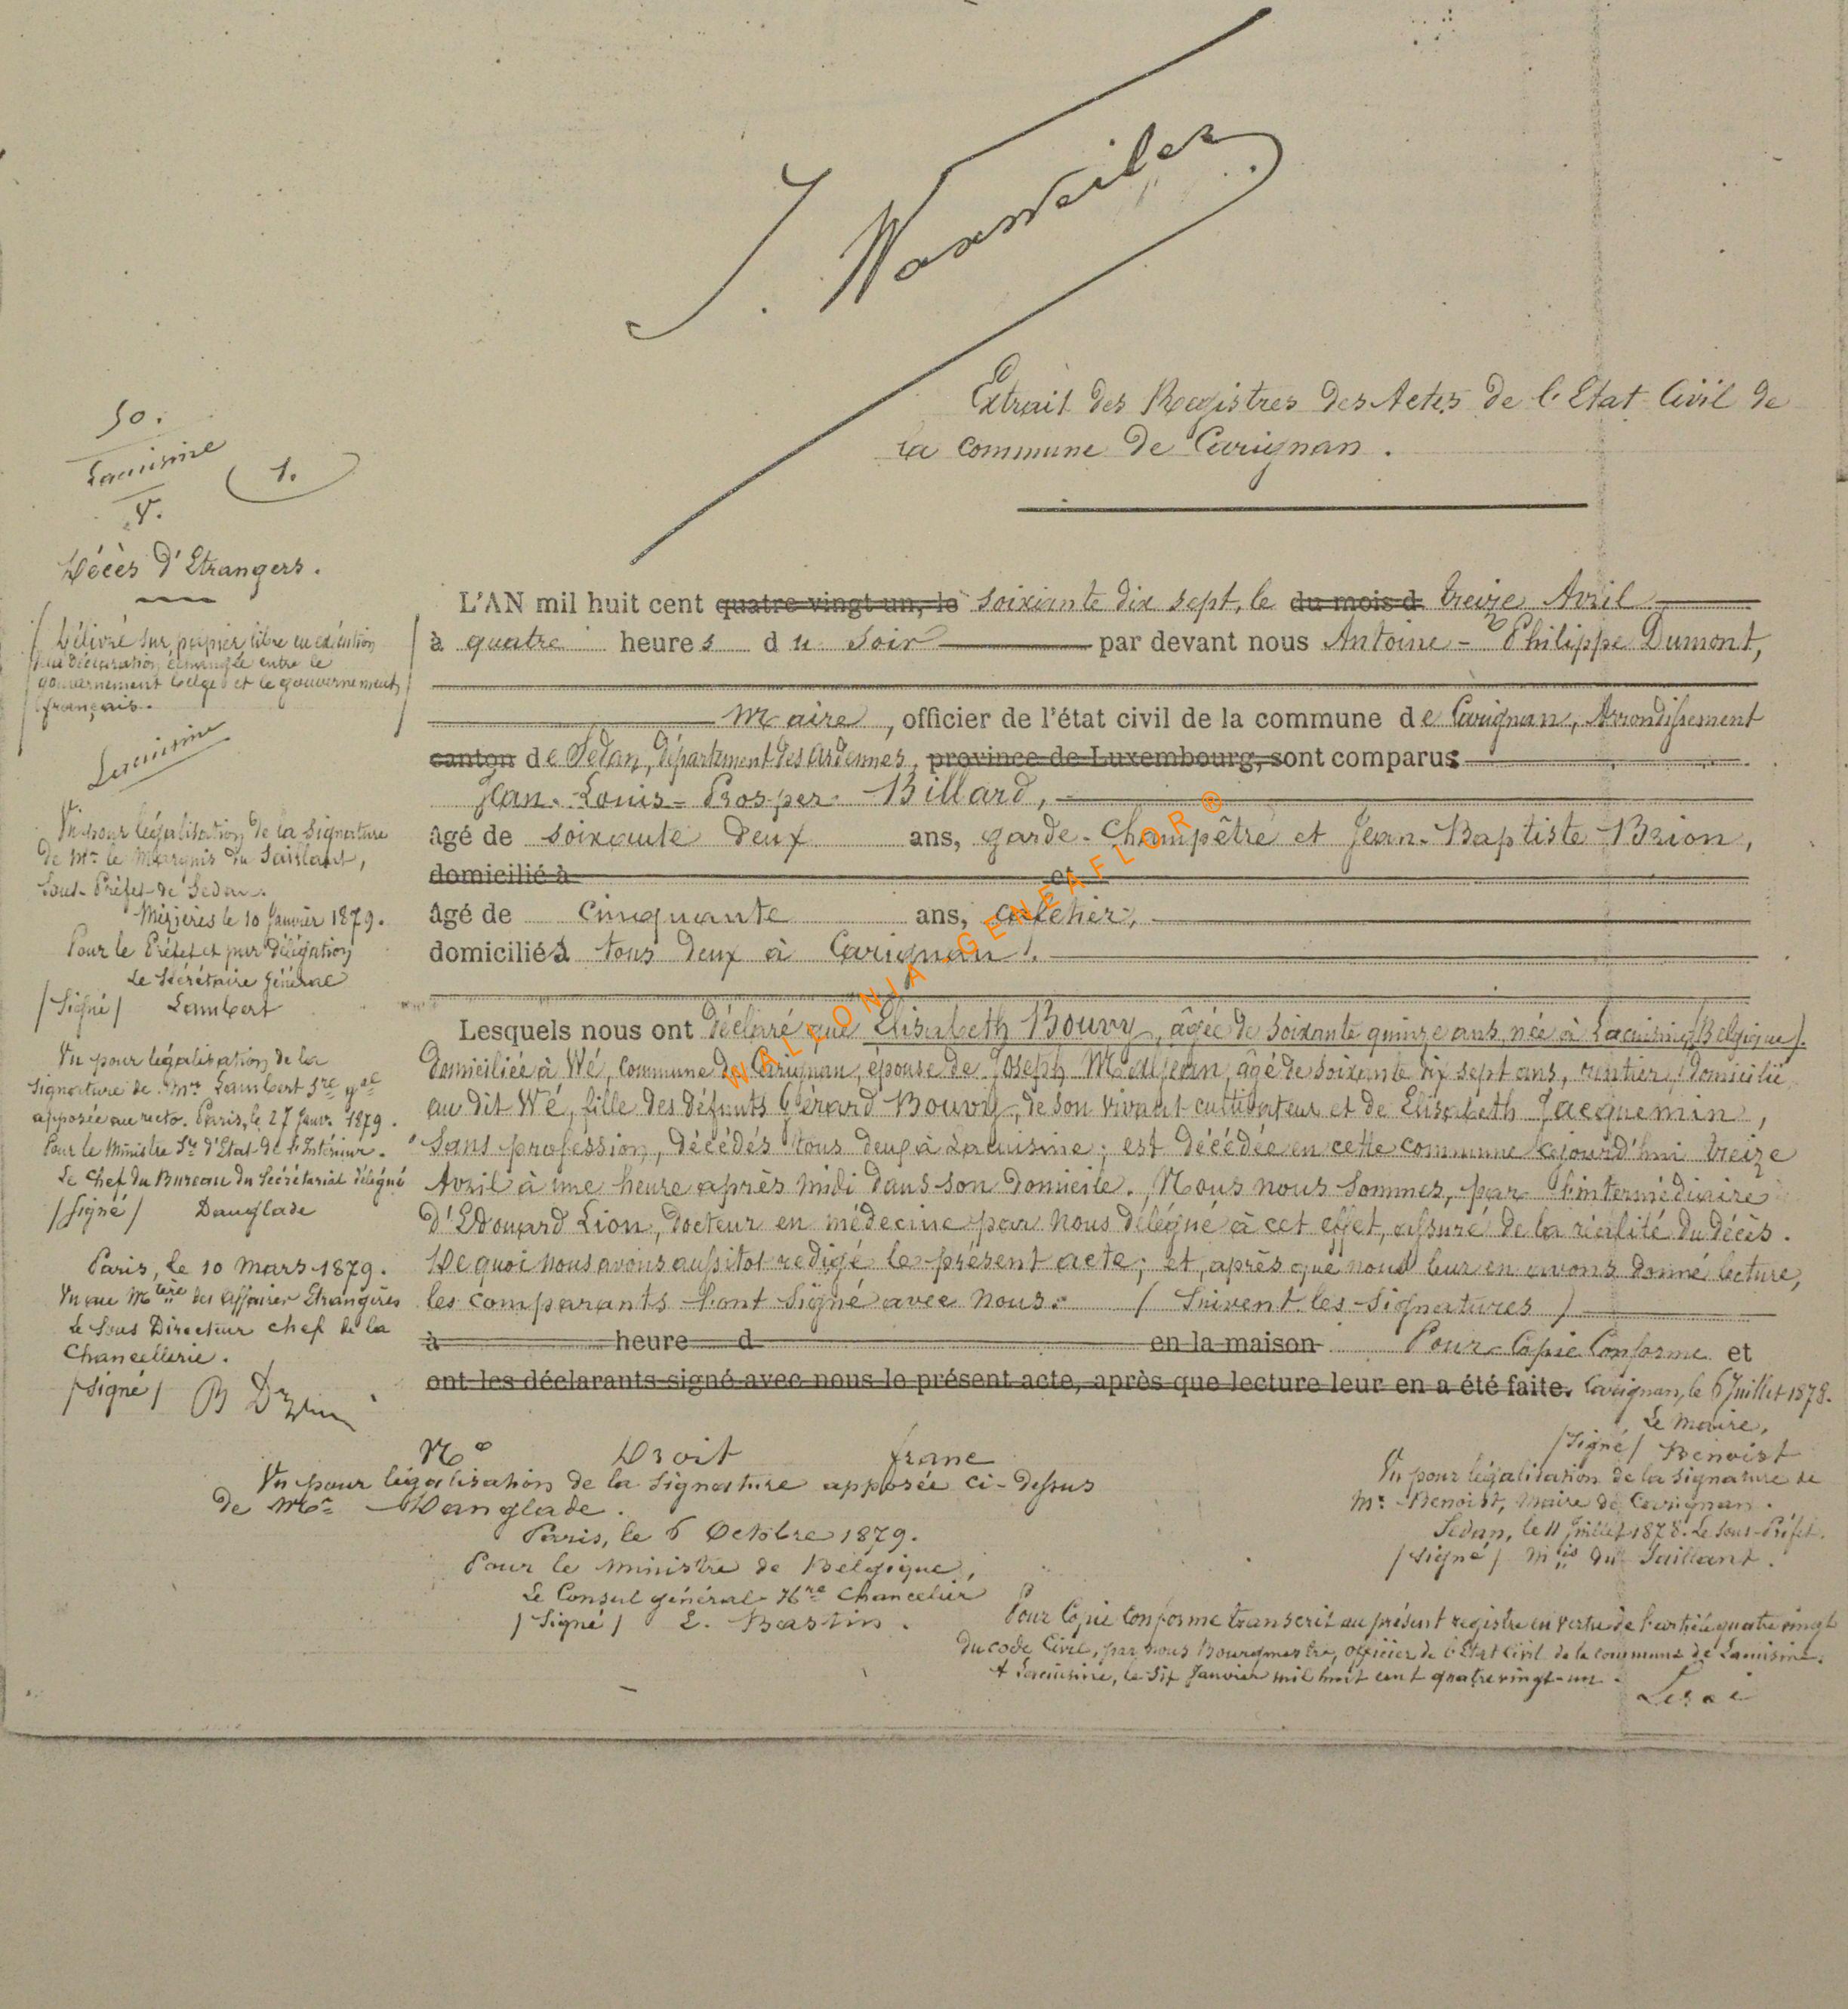 J. Nassweiler
Extrait des Registres des Actes de l'Etat Civil de
la Commune de Carignan.
50.
Lacuisine
1.
V.
Décès d'Etrangers.
Délivré sur papier libre en exécution
de la déclaration échangée entre le
gouvernement belge et le gouvernement
français.
Lacuisine
Vu pour légalisation de la signature
de Mr le Marquis du Saillant,
Sous-Préfet de Sedan.
Mézières le 10 Janvier 1879.
Pour le Préfet et par délégation
Le Secrétaire Général
/Signé/ Lambert
Vu pour légalisation de la
signature de Mr Lambert Sre gal
apposée au recto. Paris, le 27 Janv. 1879.
Pour le Ministre Sre d'Etat de l'Intérieur.
Le Chef du Bureau du Secrétariat délégué
/Signé/ Danglade
Paris, le 10 Mars 1879.
Vu au Mtère des Affaires Etrangères
Le Sous Directeur chef de la
Chancellerie.
/Signé/ B
L'AN mil huit cent quatre-vingt-un, le soixante dix sept, le du mois d treize Avril
à quatre heures du soir par devant nous Antoine-Philippe Dumont,
Maire, officier de l'état civil de la commune de Carignan, Arrondissement
canton de Sedan, Département des Ardennes, province de Luxembourg, sont comparus
Jean-Louis-Prosper Billard,
âgé de soixante deux ans, garde-Champêtre et Jean-Baptiste Brion,
domicilié à et
âgé de cinquante ans, cafetier,
domiciliés tous deux à Carignan.
Lesquels nous ont déclaré que Elisabeth Bouvy, âgée de soixante quinze ans, née à Lacuisine (Belgique).
domiciliée à Wé, Commune de Carignan, épouse de Joseph Maljean, âgé de soixante dix sept ans, rentier, domicilié
au dit Wé, fille des défunts Gérard Bouvy, de son vivant cultivateur et de Elisabeth Jacquemin,
sans profession, décédés tous deux à Lacuisine; est décédée en cette commune aujourd'hui treize
Avril à une heure après midi dans son domicile. Nous nous sommes, par l'intermédiaire
d'Edouard Lion, docteur en médecine par nous délégué à cet effet, assuré de la réalité du décès.
De quoi nous avons aussitôt rédigé le présent acte; et, après que nous leur en avons donné lecture,
les comparants l'ont signé avec nous. / Suivent les signatures /
à heure d en la maison Pour Copie Conforme et
ont les déclarants signé avec nous le présent acte, après que lecture leur en a été faite. Carignan, le 6 Juillet 1878.
Le Maire,
/Signé/ Benoist
Vu pour légalisation de la signature de
Mr Benoist, Maire de Carignan.
Sedan, le 11 Juillet 1878. Le Sous-Préfet.
/Signé/ Mis du Saillant.
No Droit franc
Vu pour légalisation de la signature apposée ci-dessus
de Mr Danglade.
Paris, le 6 Octobre 1879.
Pour le Ministre de Belgique,
Le Consul général Hre Chancelier
/Signé/ E. Bastin.
Pour Copie Conforme transcrit au présent registre en vertu de l'article quatre vingt
du code Civil, par nous Bourgmestre, officier de l'Etat Civil de la commune de Lacuisine.
A Lacuisine, le six Janvier mil huit cent quatre vingt-un.
WALLONIA-GENEAFLOR®